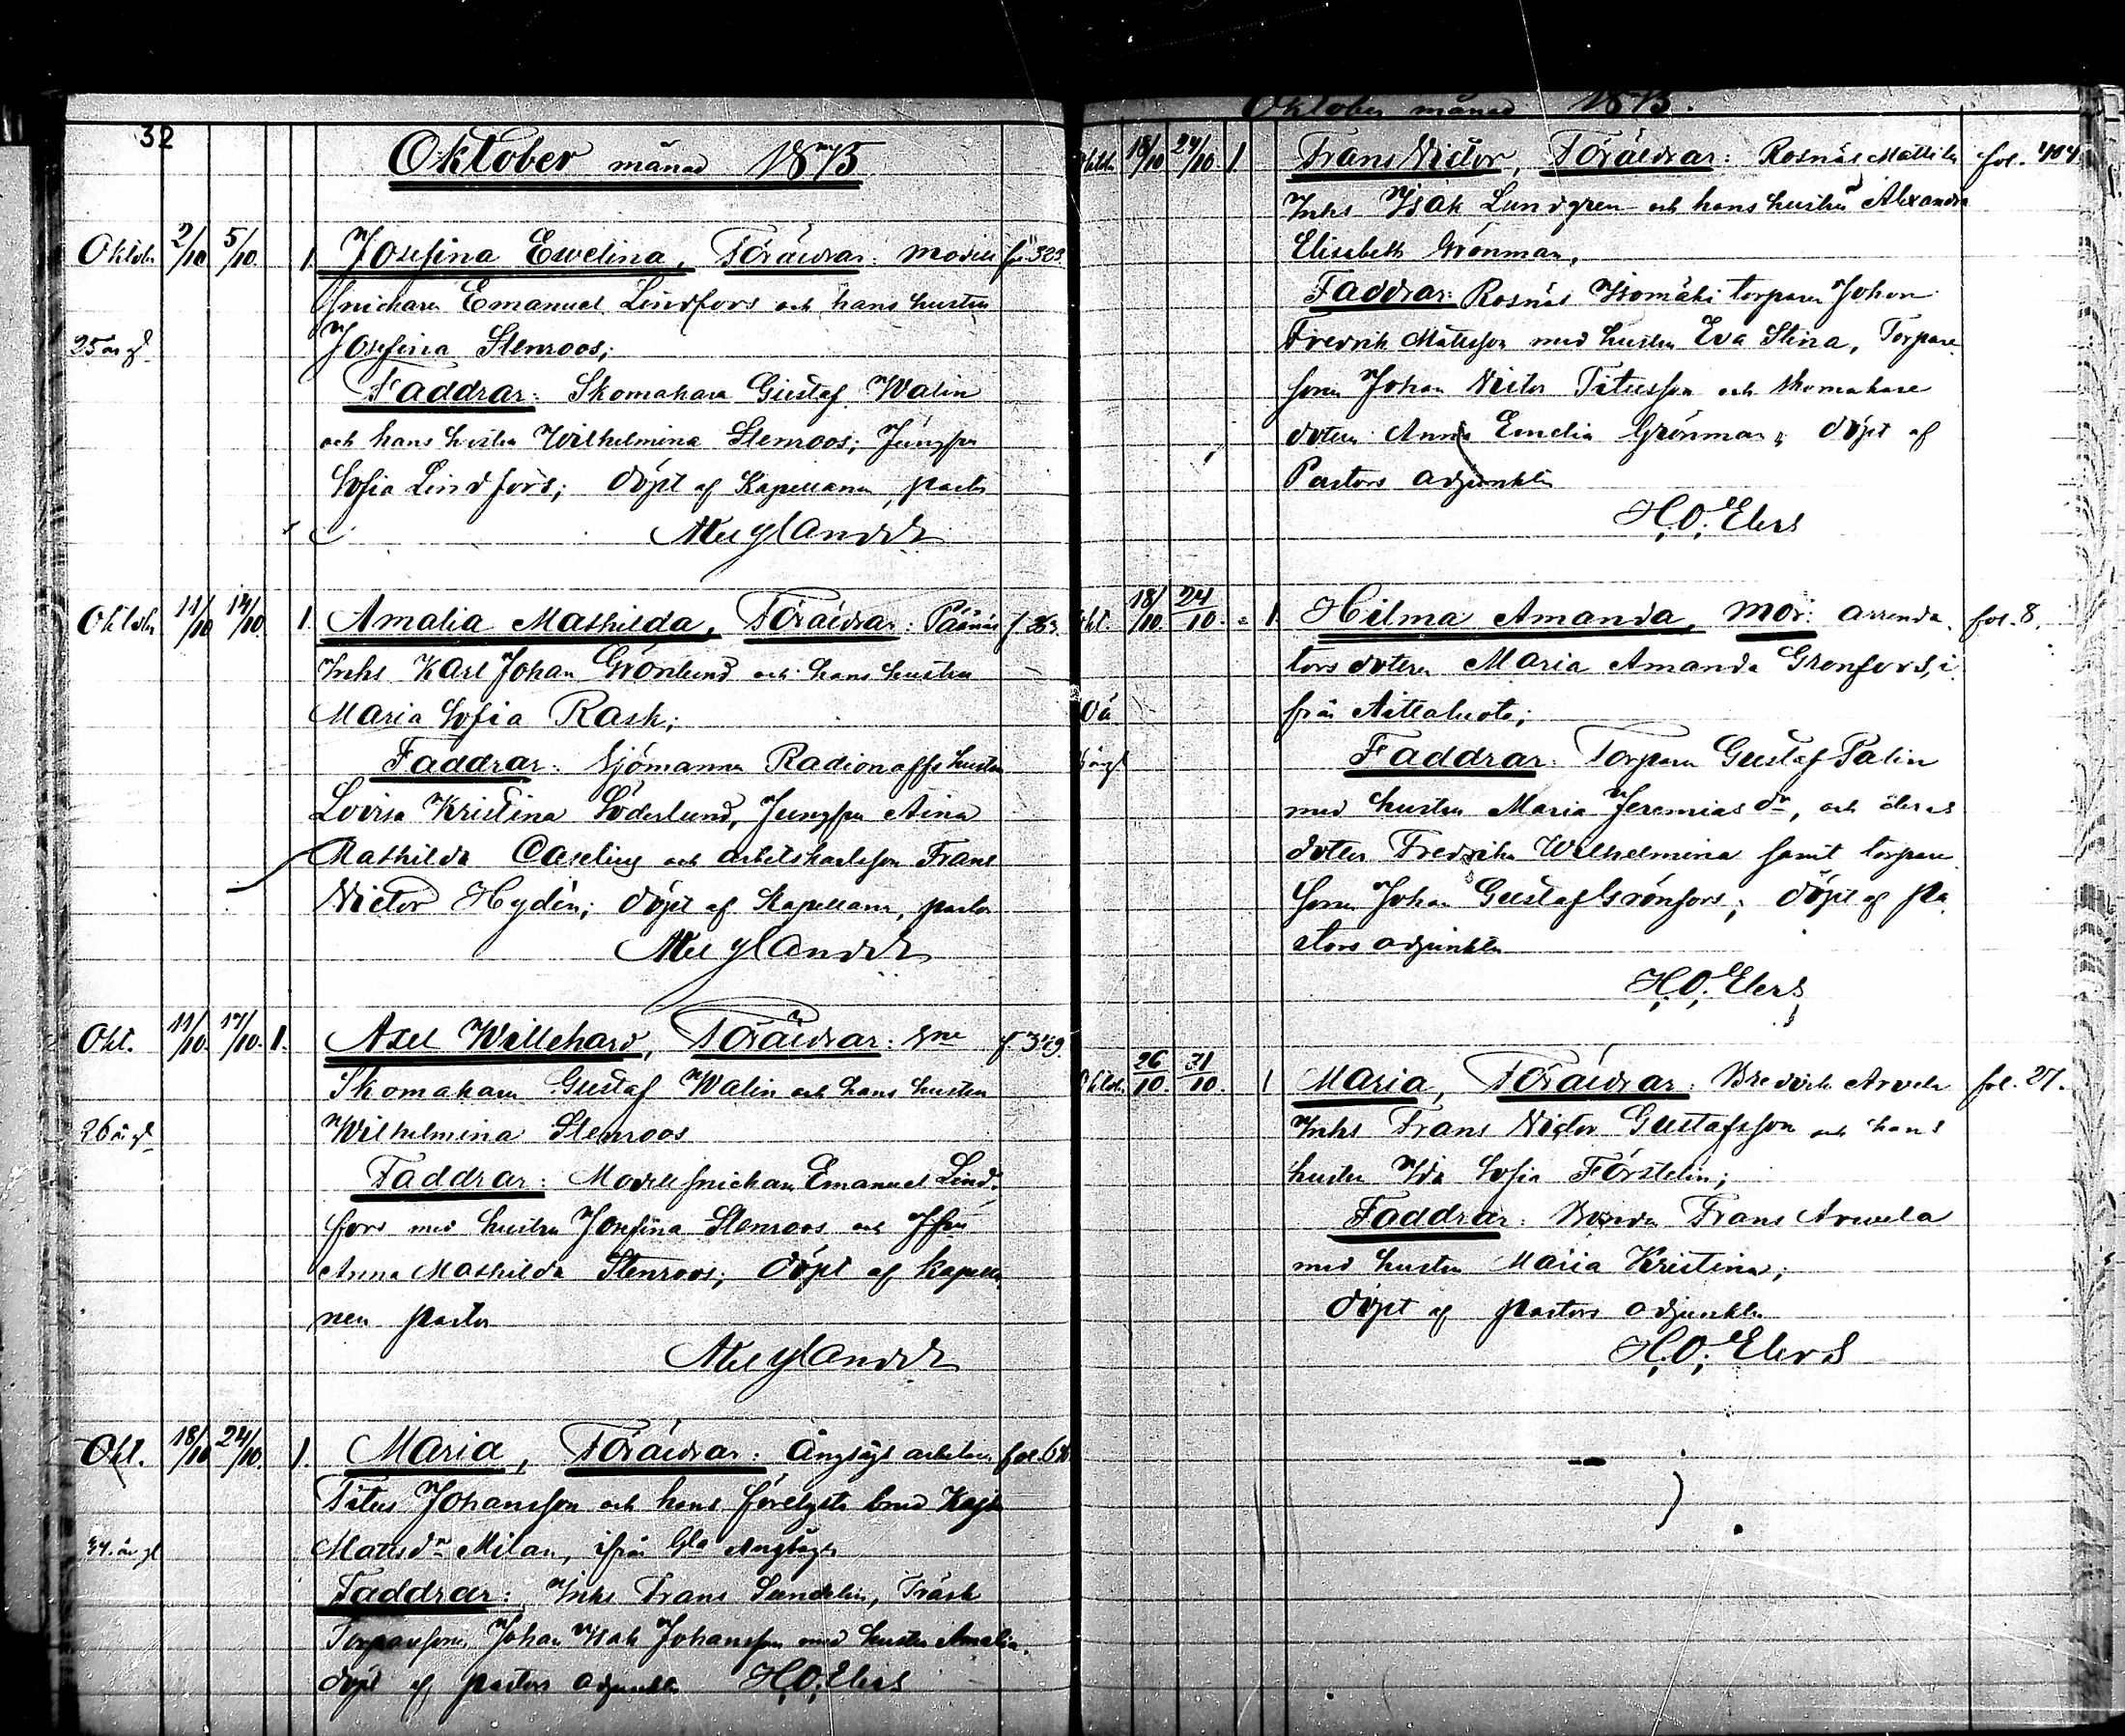 32
Oktober månad 1875
Oktob. 2/10 5/10. 1. Josefina Ewelina, Föräldrar: Modell f. 323.
snickaren Emanuel Lindfors och hans hustru
25 år gl. Josefina Stenroos;
Faddrar: Skomakare Gustaf Walin
och hans hustru Wilhelmina Stenroos; Jungfru
Sofia Lindfors; döpt af Kapellanen, pastor
Oktob. 11/10 14/10 1. Amalia Mathilda, Föräldrar: Påånäs f. 263.
Inhs Karl Johan Grönlund och hans hustru
Maria Sofia Rask;
Faddrar: Sjömannen Radionoffs hustru
Lovisa Kristina Söderlund, Jungfru Aina
Mathilda Caselius och arbetskarlsson Frans
Victor Hydén; döpt af Kapellanen, pastor
Okt. 11/10. 17/10. 1. Axel Willehard, Föräldrar: f. 349.
Skomakaren Gustaf Walin och hans hustru
26 år gl. Wilhelmina Stenroos
Faddrar: Modellsnickaren Emanuel Lind-
fors med hustru Josefina Stenroos och Jfru
Anna Mathilda Stenroos; döpt af kapella
nen pastor
Okt. 18/10 24/10. 1. Maria, Föräldrar: Ångsågs arbetaren fol.
Titus Johansson och hans förelysta brud Kajsa
34 år gl Matsdr Milan, ifrån Gla Ångsågen
Faddrar: Inhs Frans Sundelin, Träsk
Torparesonen Johan Isak Johansson med hustru Amalia.
döpt af pastors adjunkten H.O. Elers
Oktober månad 1875.
Oktob. 18/10 24/10. 1 Frans Victor, Föräldrar: Rosnäs Mattila fol. 404
Inhs Isak Lundgren och hans hustru Alexandra
Elisabeth Grönman,
Faddrar: Rosnäs Isomäki torparen Johan
Fredrik Matsson med hustru Eva Stina, Torpare
sonen Johan Victor Titusson och skomakare
dotern Anna Emelia Grönman; döpt af
Pastors adjunkten
H.O. Elers
Okt. 18/10. 24/10. 1. Hilma Amanda, Mor: arrenda- fol. 8.
tors dotern Maria Amanda Grönfors, i
från Aittaluoto;
Faddrar: Torparen Gustaf Palin
med hustru Maria Jeremiasdr, och deras
dotter Fredrika Wilhelmina samt torpare
sonen Johan Gustaf Grönfors; döpt af pa
stors adjunkten
H.O. Elers
Oktob. 26/10. 31/10. 1 Maria, Föräldrar: Arvela fol. 27.
Inhs Frans Victor Gustafsson och hans
hustru Ida Sofia Förstelin;
Faddrar: Bonden Frans Arvela
med hustru Maria Kristina;
döpt af pastors adjunkten
H.O. Elers